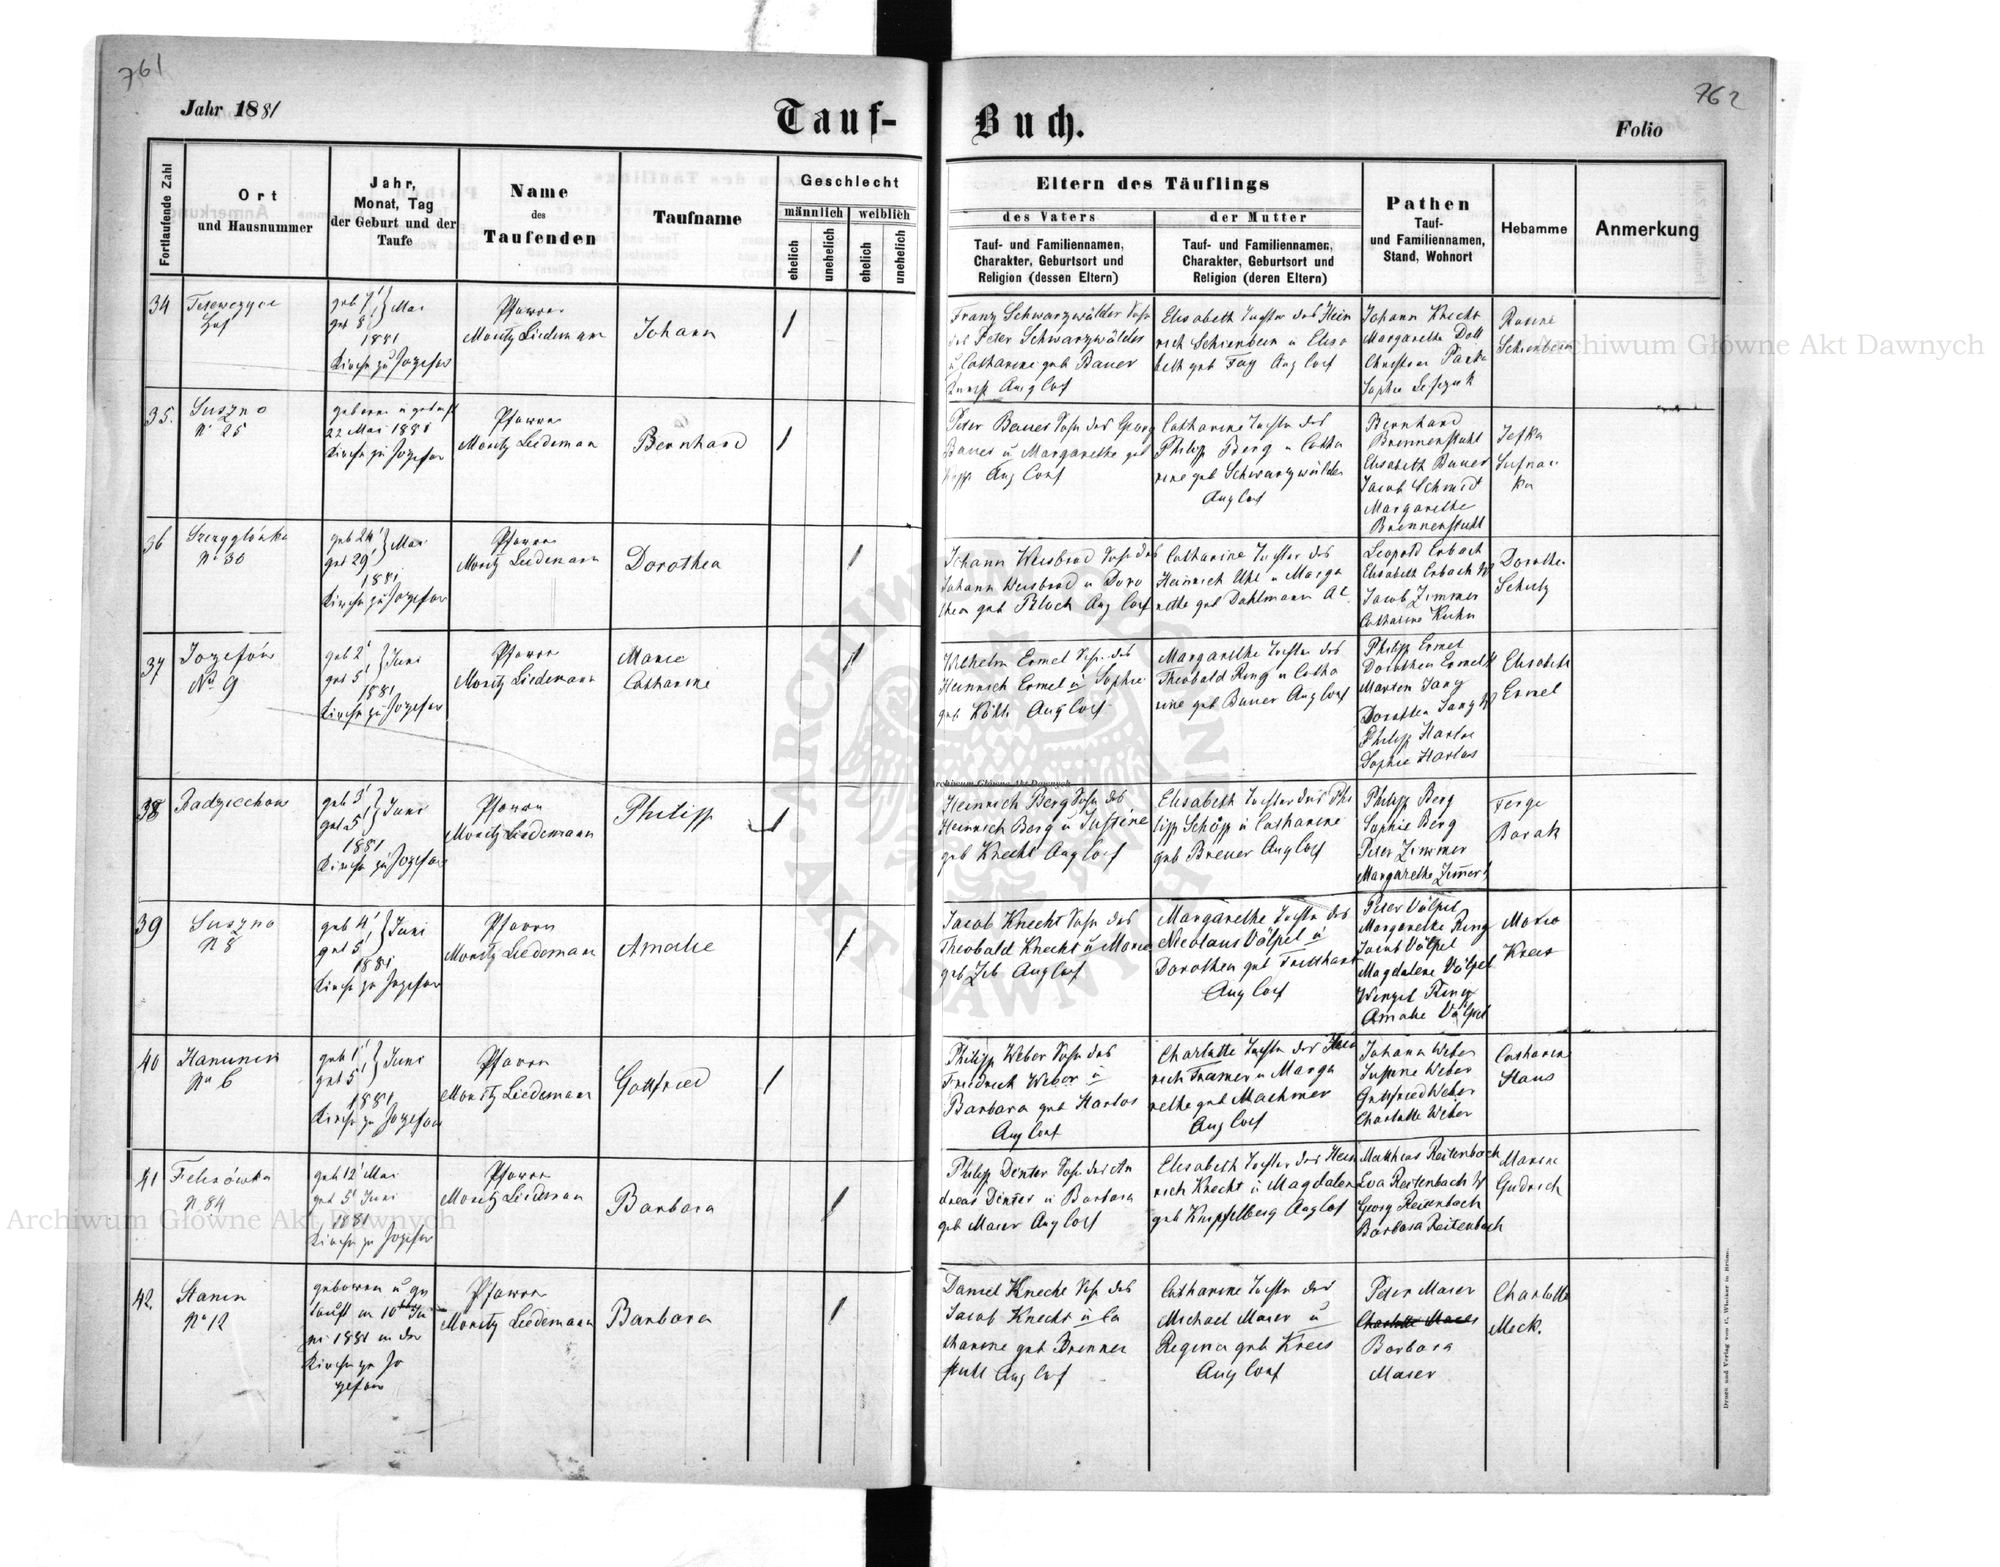 761
762
Jahr 1881
Tauf-
Buch.
Folio
Fortlaufende Zahl
Ort
und Hausnummer
Jahr,
Monat, Tag
der Geburt und der
Taufe
Name
des
Taufenden
Taufname
Geschlecht
männlich
weiblich
ehelich
unehelich
ehelich
unehelich
Eltern des Täuflings
des Vaters
Tauf- und Familiennamen,
Charakter, Geburtsort und
Religion (dessen Eltern)
der Mutter
Tauf- und Familiennamen,
Charakter, Geburtsort und
Religion (deren Eltern)
Pathen
Tauf-
und Familiennamen,
Stand, Wohnort
Hebamme
Anmerkung
34
geb 7
get 8 Mai
1881
Kirche zu Jozefow
Pfarrer
Moritz Liedemann
Johann
Franz Schwarzwälder Sohn
des Peter Schwarzwälder
u Catharine geb Bauer
Aug Conf
Elisabeth Tochter des Hein
rich Schienbein u Elisa
beth geb Fay Aug Conf
Johann Knecht
Margarethe Doll
Christian
Sophie
Rosine
Schienbein
35.
Suszno
No 25
geboren u getauft
22 Mai 1881
Kirche zu Jozefow
Pfarrer
Moritz Liedemann
Bernhard
Peter Bauer Sohn des Georg
Bauer u Margarethe geb
Aug Conf
Catharine Tochter des
Philipp Berg u Catha
rine geb Schwarzwälder
Aug Conf
Bernhard
Brennenstuhl
Elisabeth Bauer
Jacob Schmidt
Margarethe
Brennenstuhl
Jefka
ka
36
No 30
geb 24
get 29 Mai
1881
Kirche zu Jozefow
Pfarrer
Moritz Liedemann
Dorothea
Johann Weisbrod Sohn des
Johann Weisbrod u Doro
thea geb Bloch Aug Conf
Catharine Tochter des
Heinrich Uhl u Marga
rethe geb Dahlmann AC
Leopold Erbach
Elisabeth Erbach W
Jacob Zimmer
Catharine Kuhn
Dorothea
Schutz
37
Jozefów
No 9
geb 2
get 5 Juni
1881
Kirche zu Jozefow
Pfarrer
Moritz Liedemann
Marie
Catharine
Wilhelm Ermel Sohn des
Heinrich Ermel u Sophie
geb Aug Conf
Margarethe Tochter des
Theobald Ring u Catha
rine geb Bauer Aug Conf
Philipp Ermel
Dorothea Ermel W
Martin Jang
Dorothea Jang W
Philipp Harlos
Sophie Harlos
Elisabeth
Ermel
38
Radziechow
geb 3
get 5 Juni
1881
Kirche zu Jozefow
Pfarrer
Moritz Liedemann
Philipp
Heinrich Berg Sohn des
Heinrich Berg u Justine
geb Knecht Aug Conf
Elisabeth Tochter des Phi
lipp Schöpp u Catharine
geb Breuer Aug Conf
Philipp Berg
Sophie Berg
Peter Zimmer
Margarethe Zimmer
Ferge
Borak
39
Suszno
N 8
geb 4
get 5 Juni
1881
Kirche zu Jozefow
Pfarrer
Moritz Liedemann
Amalie
Jacob Knecht Sohn des
Theobald Knecht u Marie
geb Aug Conf
Margarethe Tochter des
Nicolaus Völpel u
Dorothea geb
Aug Conf
Peter Völpel
Margarethe Ring
Jacob Völpel
Magdalene Völpel
Wenzel Ring
Amalie Völpel
Marie
Krees
40
Hanunin
No 6
geb 1
get 5 Juni
1881
Kirche zu Jozefow
Pfarrer
Moritz Liedemann
Gottfried
Philipp Weber Sohn des
Friedrich Weber u
Barbara geb Harlos
Aug Conf
Charlotte Tochter des Hein
rich Framer u Marga
rethe geb Machmer
Aug Conf
Johann Weber
Justine Weber
Gottfried Weber
Charlotte Weber
Catharine
Haus
41
Felixówka
N 84
geb 12 Mai
get 5 Juni
1881
Kirche zu Jozefow
Pfarrer
Moritz Liedemann
Barbara
Philipp Dinter Sohn des An
dreas Dinter u Barbara
geb Maier Aug Conf
Elisabeth Tochter des Hein
rich Knecht u Magdalen
geb Knipfelberg Aug Conf
Matthias Reitenbach
Eva Reitenbach W
Georg Reitenbach
Barbara Reitenbach
Marine
Gudrich
42.
Stanin
No 12
geboren u ge
tauft am 10ten Ju
ni 1881 in der
Kirche zu Jo
zefow
Pfarrer
Moritz Liedemann
Barbara
Daniel Knecht Sohn des
Jacob Knecht u Ca
tharine geb Brennen
stuhl Aug Conf
Catharine Tochter des
Michael Maier u
Regina geb Krees
Aug Conf
Peter Maier
Charlotte Maier
Barbara
Maier
Charlotte
Meck.
Archiwum Główne Akt Dawnych
Archiwum Główne Akt Dawnych
Archiwum Główne Akt Dawnych
Druck und Verlag von C. Winiker in Brünn.